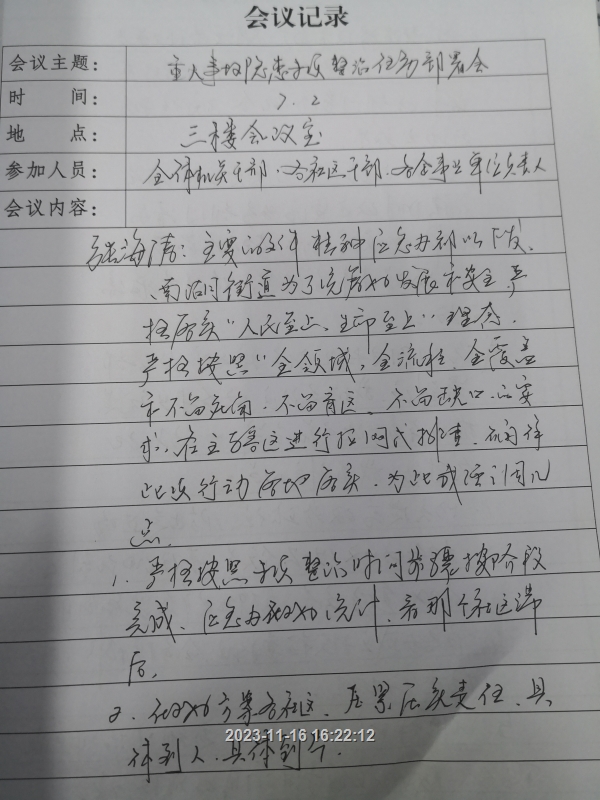 会议记录
会议主题： 重大事故隐患专项整治任务部署会
时 间： 7.2
地 点： 三楼会议室
参加人员： 全体机关干部、各社区干部、各企事业单位负责人
会议内容：
张海清：主要的文件精神应急办都以下发、
南泊河街道为了统筹好发展和安全，严
格落实“人民至上、生命至上”理念.
严格按照“全领域，全流程，全覆盖
和不留死角、不留盲区、不留缺口”的要
求，在主辖区进行拉网式排查，确保
此次行动落地落实，为此我强调几
点.
1、严格按照专项整治时间步骤按阶段
完成、应急办做好统计，看那个社区滞
后.
2、做好方案各社区，压紧压实责任、具
体到人，具体到个.
2023-11-16 16:22:12